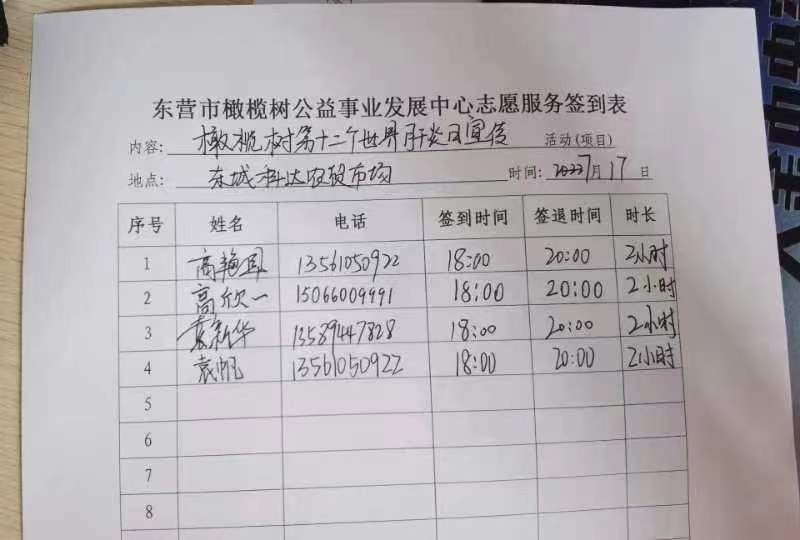 东营市橄榄树公益事业发展中心志愿服务签到表
内容: 橄榄树第十二个世界肝炎日宣传 活动(项目)
地点: 东城科达农贸市场 时间: 2022 7月17日
序号 姓名 电话 签到时间 签退时间 时长
1 高艳 13561050922 18:00 20:00 2小时
2 高欣一 15066009991 18:00 20:00 2小时
3 袁新华 13589447828 18:00 20:00 2小时
4 袁帆 13561050922 18:00 20:00 2小时
5
6
7
8